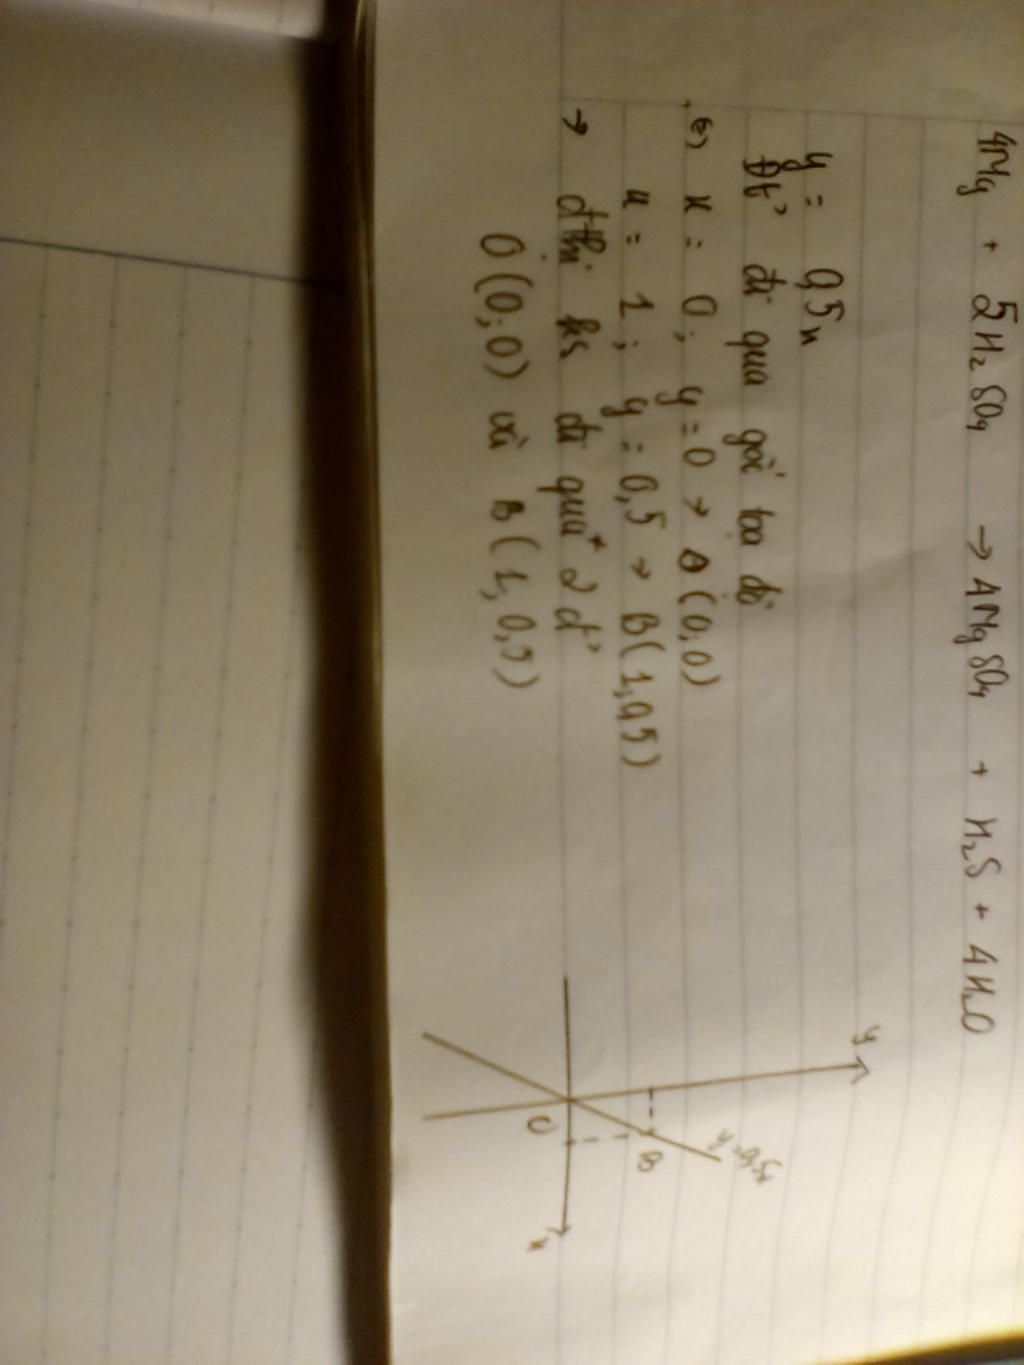 4Mg + 5H₂SO₄ → 4MgSO₄ + H₂S + 4H₂O
y = 0,5x
Đt' đi qua gốc tọa độ
x = 0; y = 0 → O(0;0)
x = 1; y = 0,5 → B(1;0,5)
→ đthị hs đi qua 2 đ'
O(0;0) và B(1;0,5)
y
y=0,5x
B
O
x